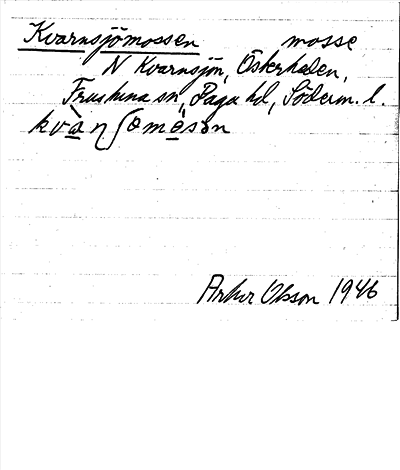 Kvarnsjömossen mosse
N Kvarnsjön, Österhaden,
Frustuna sn, Daga hd, Söderm. l.
kvàṇʃomåsən
Artur Olsson 1946